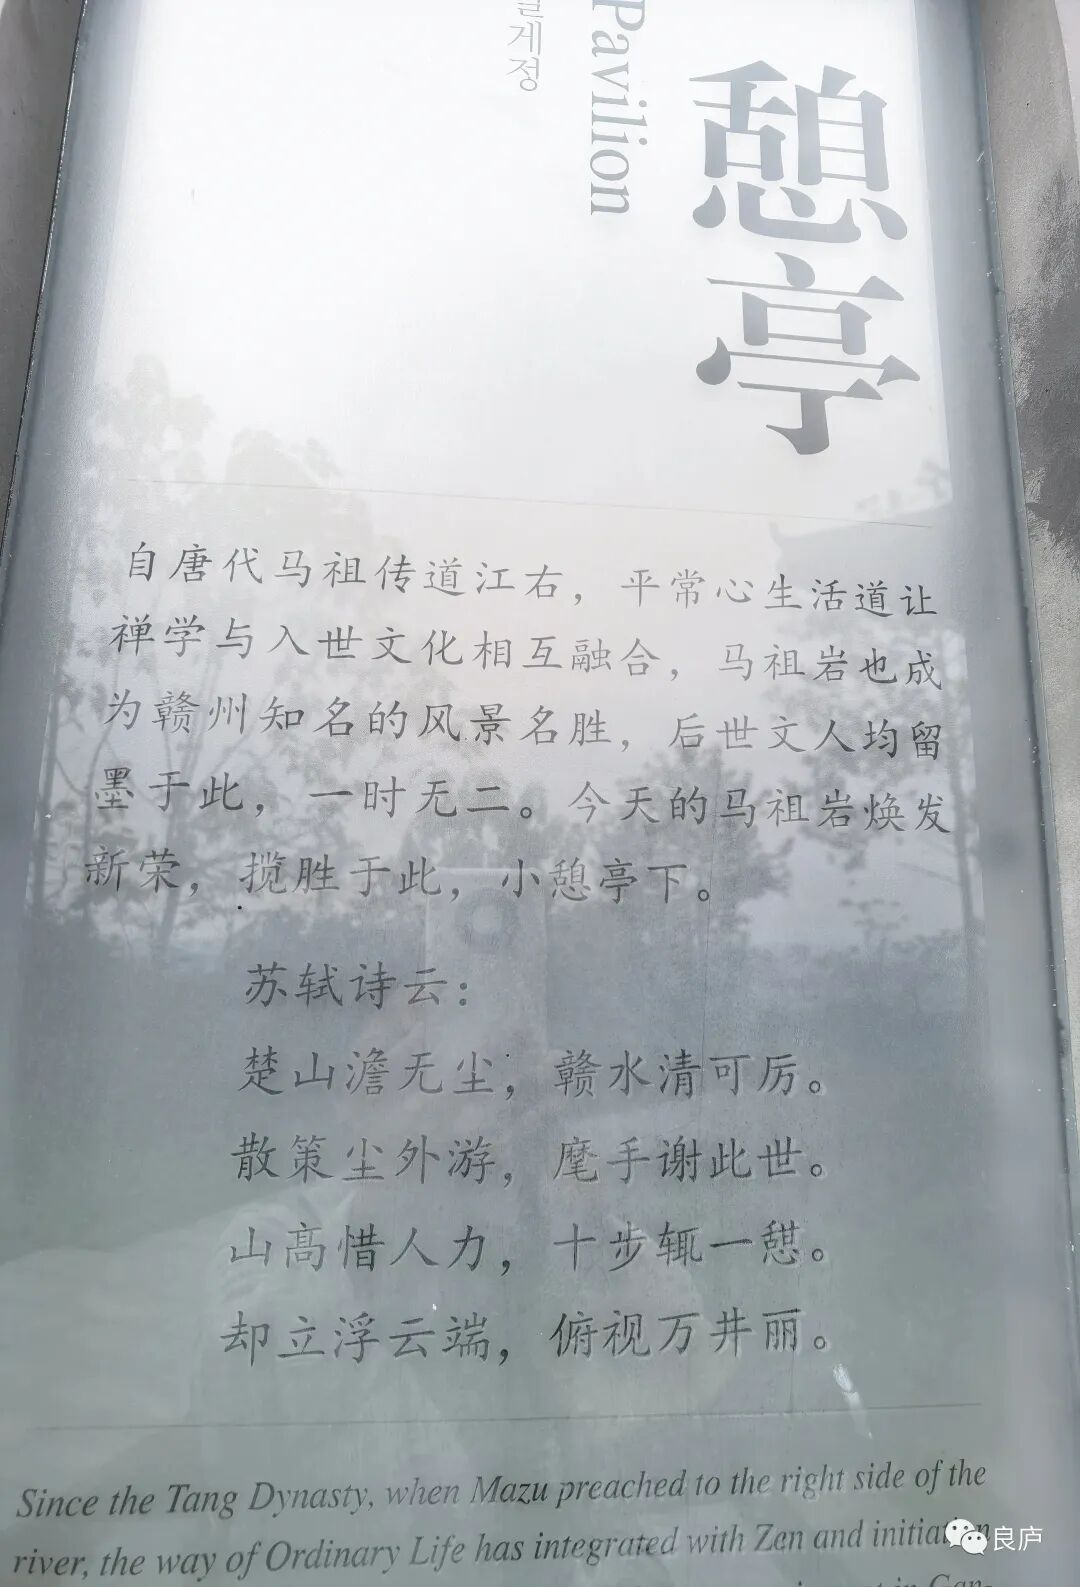 憩亭
Pavilion
게정
自唐代马祖传道江右，平常心生活道让
禅学与入世文化相互融合，马祖岩也成
为赣州知名的风景名胜，后世文人均留
墨于此，一时无二。今天的马祖岩焕发
新荣，揽胜于此，小憩亭下。
苏轼诗云：
楚山澹无尘，赣水清可厉。
散策尘外游，麾手谢此世。
山髙惜人力，十步辄一憇。
却立浮云端，俯视万井丽。
Since the Tang Dynasty, when Mazu preached to the right side of the
river, the way of Ordinary Life has integrated with Zen and
良庐